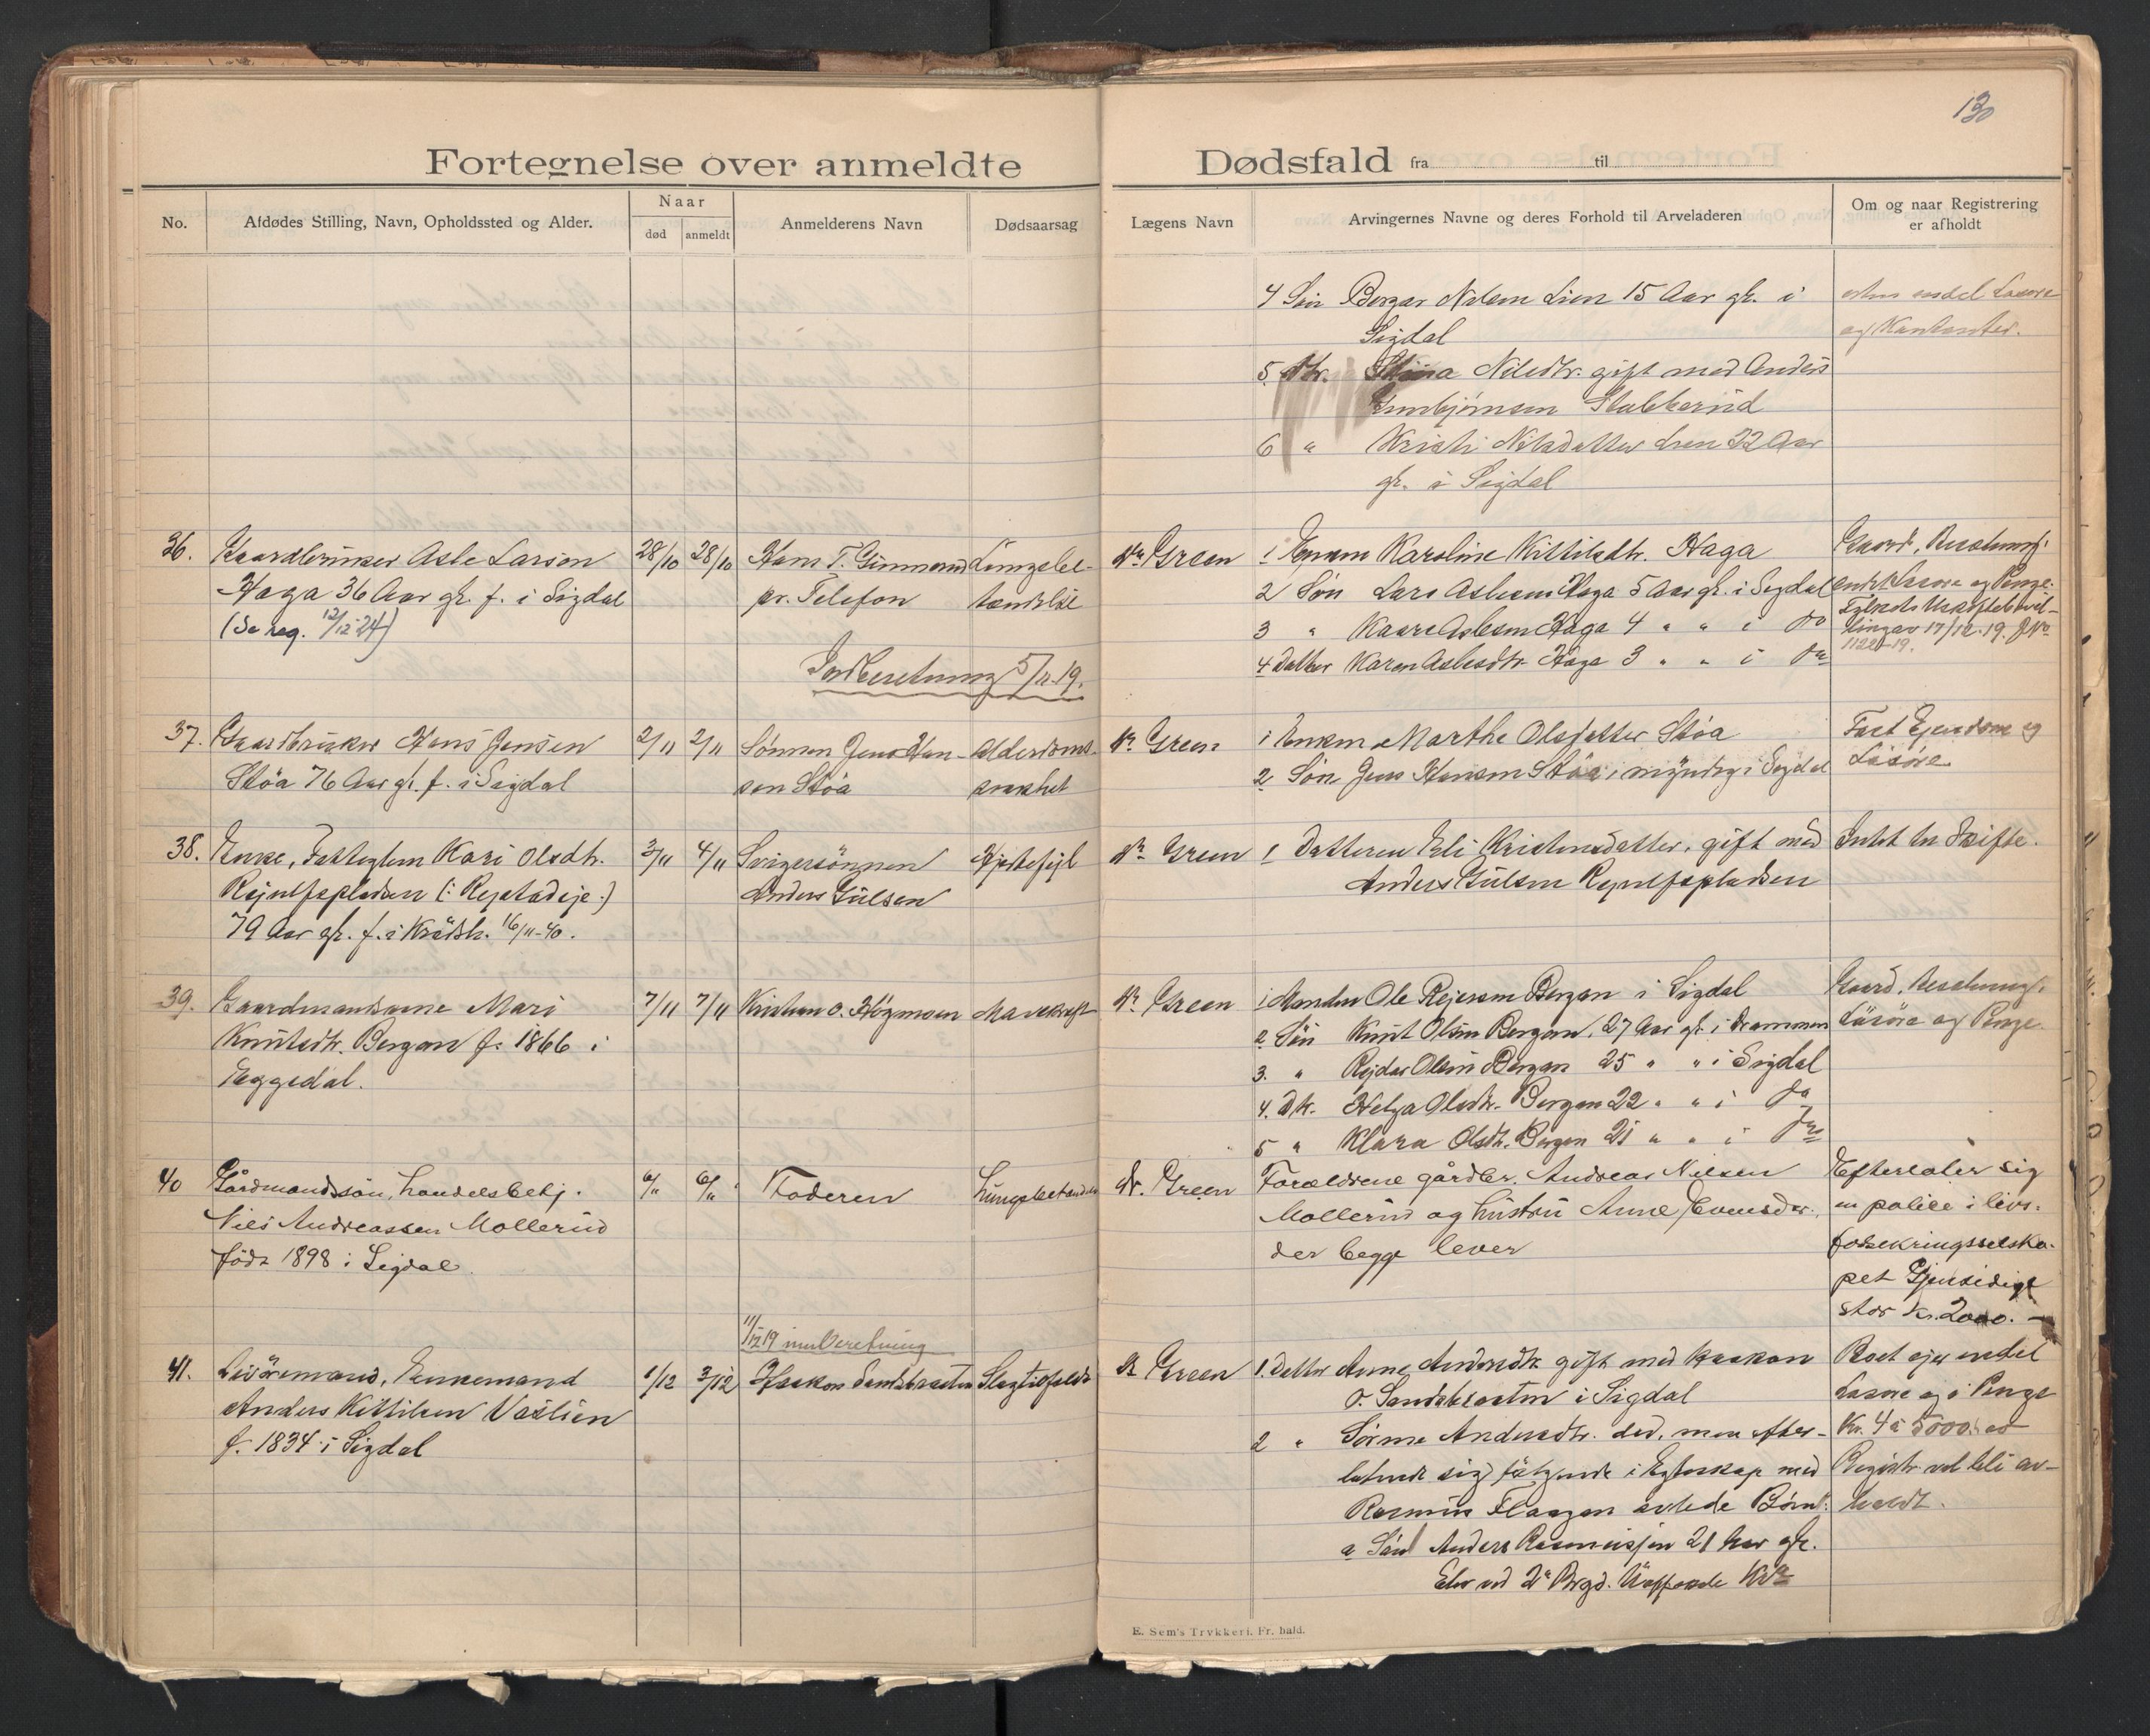 130
Fortegnelse over anmeldte Dødsfald fra til
No.
Afdødes Stilling, Navn, Opholdssted og Alder.
Naar
død
anmeldt
Anmelderens Navn
Dødsaarsag
Lægens Navn
Arvingernes Navne og deres Forhold til Arveladeren
Om og naar Registrering
er afholdt
4 Søn Bergar Nilsen Lien 15 Aar gl. i
Sigdal
5. Dtr. Nilsdtr. gift med Anders
Stubberud
6 " Kristi Nilsdatter Lien 22 Aar
gl. i Sigdal
endel Løsøre
og Kontanter.
36.
Gaardbruker Asle Larsen
Haga 36 Aar gl. f. i Sigdal
(Se reg. 12/12-24)
28/10
28/10
Hans T. Gunnerud
pr. Telefon
Lungebe-
tændelse
Indberetning 5/11-19.
Dr. Green
1 Enken Karoline Kittilsdtr. Haga
2 Søn Lars Aslesen Haga 5 Aar gl. i Sigdal
3 " Kaare Aslesen Haga 4 " " i do
4 Datter Karen Aslesdtr. Haga 3 " " i do
Gaard, Besetning,
Løsøre og Penge.
17/12-19.
37.
Gaardbruker Hans Jensen
Støa 76 Aar gl. f. i Sigdal
2/11
2/11
Sønnen Jens Han-
sen Støa
Alderdoms-
svakhet
Dr. Green
1 Enken Marthe Olsdatter Støa
2 Søn Jens Hansen Støa, myndig i Sigdal
Fast Ejendom og
Løsøre
38.
Enke, Fattiglem Kari Olsdtr.
Rejnulfspladsen (: Rejstadeje :)
79 Aar gl. f. i Krødsh. 16/11-40.
3/11
4/11
Svigersønnen
Anders Gulsen
Hjertefejl
Dr. Green
1 Datteren Eli Kristensdatter, gift med
Anders Gulsen Rejnulfspladsen
Intet til Skifte.
39.
Gaardmandskone Mari
Knutsdtr. Bergan f. 1866 i
Eggedal.
7/11
7/11
Kristian O. Høgmoen
Mavekræft
Dr. Green
1 Manden Ole Rejersen Bergan i Sigdal
2 Søn Knut Olsen Bergan, 27 Aar gl. i Drammen
3. " Rejdar Olsen Bergan 25 " " i Sigdal
4. Dtr. Helga Olsdtr. Bergan 22 " " i do
5 " Klara Olsdtr. Bergan 21 " " i do
Gaard, Besetning,
Løsøre og Penge.
40
Gårdmandssøn, handelsbetj.
Nils Andreassen Mollerud
født 1898 i Sigdal.
6/11
6/11
Faderen
Lungebetændelse
Dr. Green
Forældrene gårdbr. Andreas Nilsen
Mollerud og hustru Anne Evensdtr.
der begge lever
Efterlater sig
en police i livs-
forsekringsselska-
pet Gjensidige
stor kr. 2000.-
11/12 19 innberetning
41.
Livøremand, Enkemand
Anders Kittilsen Vaslien
f. 1834 i Sigdal
1/12
3/12
Haakon Sandsbraaten
Slagtilfælde
Dr. Green
1. Datter Anne Andersdtr. gift med Haakon
O. Sandsbraaten i Sigdal
2 " Andersdtr. død, men efter-
latende sig følgende i Egteskap med
Rasmus Flaagan avlede Børn:
a Søn Anders Rasmussen 21 Aar gl.
Elev ved 2den Brgd.
Boet ejer endel
Løsøre og i Penge
Kr. 4 à 5000.
Registr. vil bli av-
holdt.
E. Sem's Trykkeri, Fr. hald.